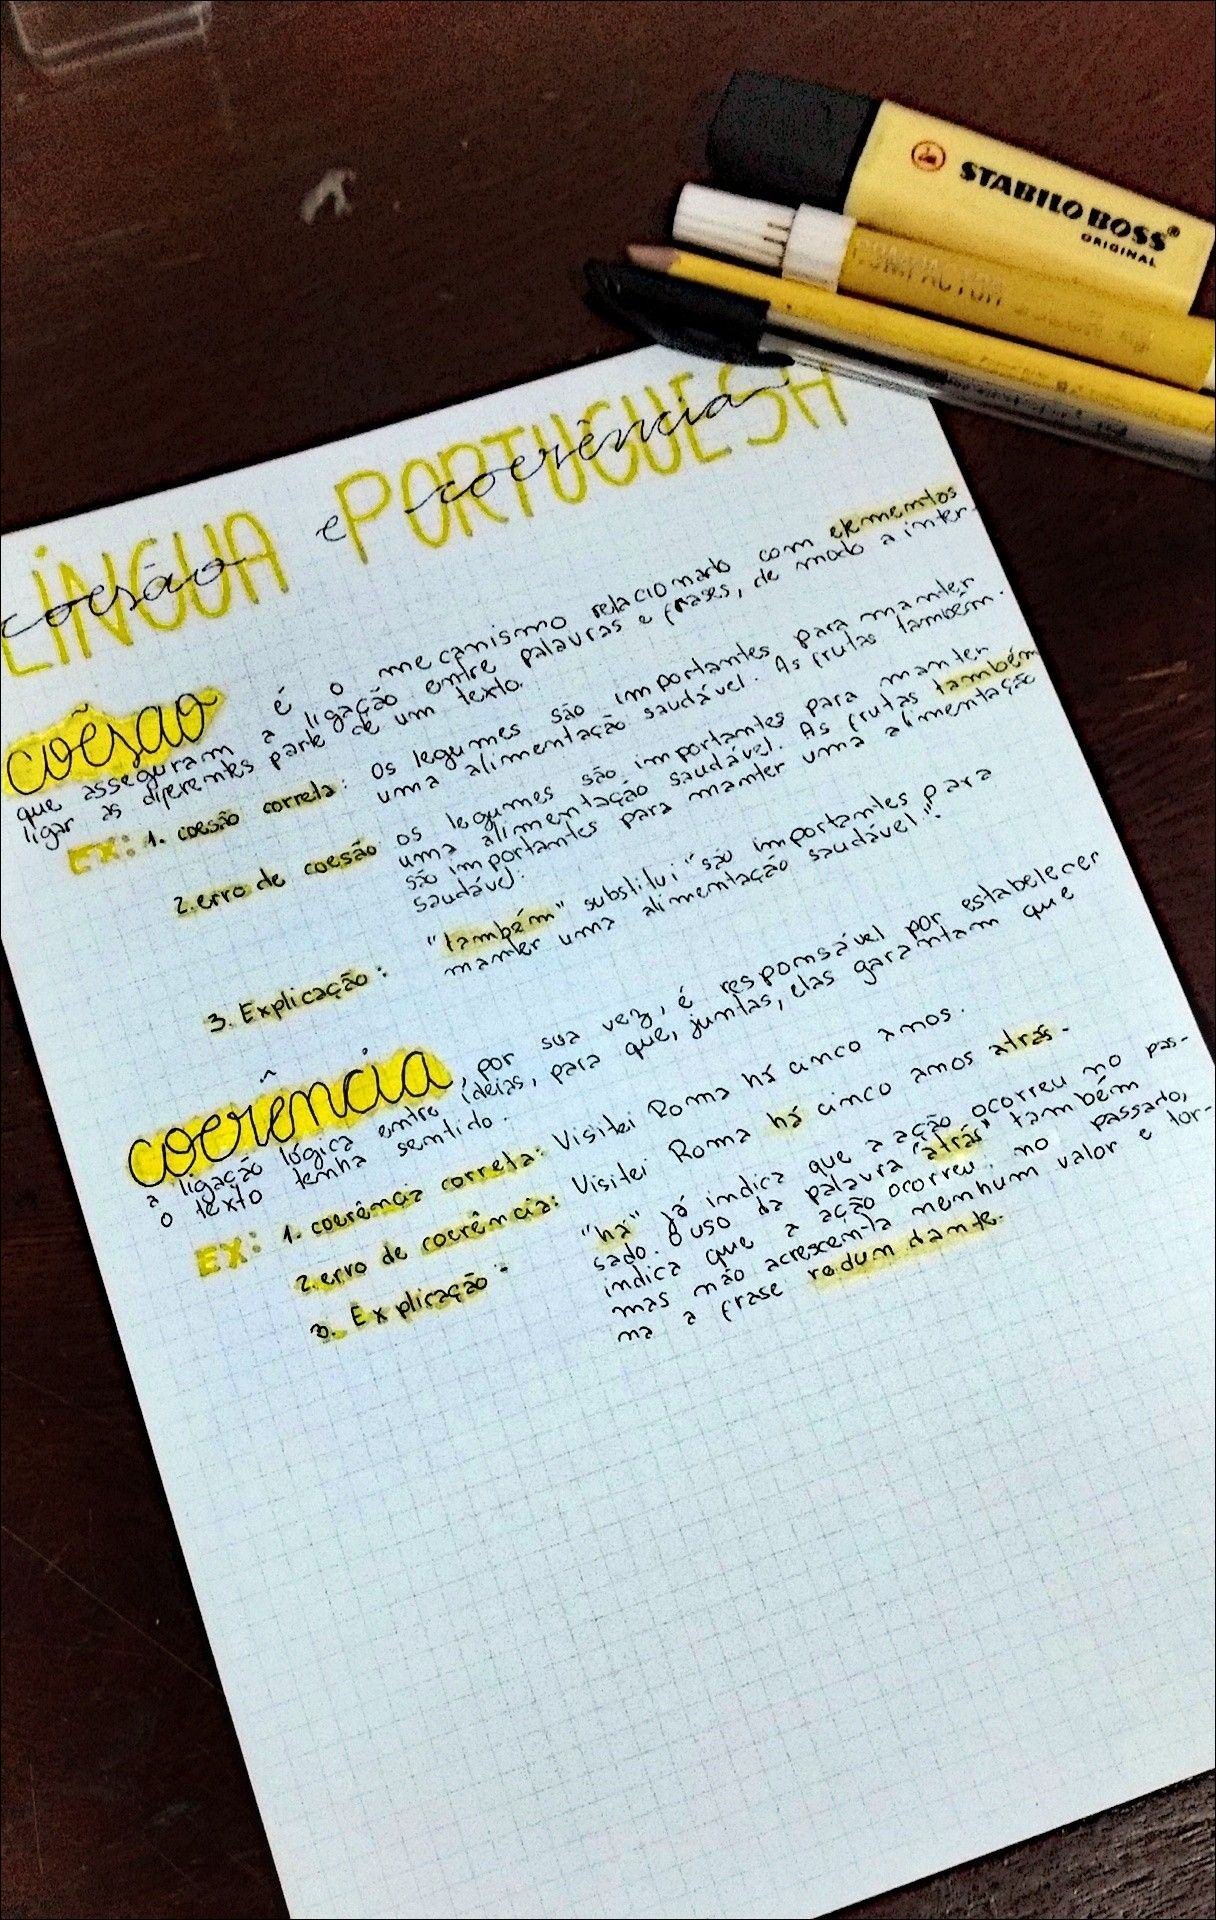 STABILO BOSS®
ORIGINAL
COMPACTOR
LÍNGUA PORTUGUESA
coesão e coerência
coesão é o mecanismo relacionado com elementos
que asseguram a ligação entre palavras e frases, de modo a inter-
ligar as diferentes parte de um texto.
EX: 1. coesão correta: os legumes são importantes para manter
uma alimentação saudável. As frutas também.
2. erro de coesão os legumes são importantes para manter
uma alimentação saudável. As frutas também
são importantes para manter uma alimentação
saudável.
3. Explicação: "também" substitui "são importantes para
manter uma alimentação saudável".
coerência, por sua vez, é responsável por estabelecer
a ligação lógica entre ideias, para que, juntas, elas garantam que
o texto tenha sentido.
EX: 1. coerência correta: Visitei Roma há cinco anos.
2. erro de coerência: Visitei Roma há cinco anos atrás.
3. Explicação: "há" já indica que a ação ocorreu no pas-
sado. O uso da palavra "atrás" também
indica que a ação ocorreu no passado,
mas não acrescenta nenhum valor e tor-
na a frase redundante.